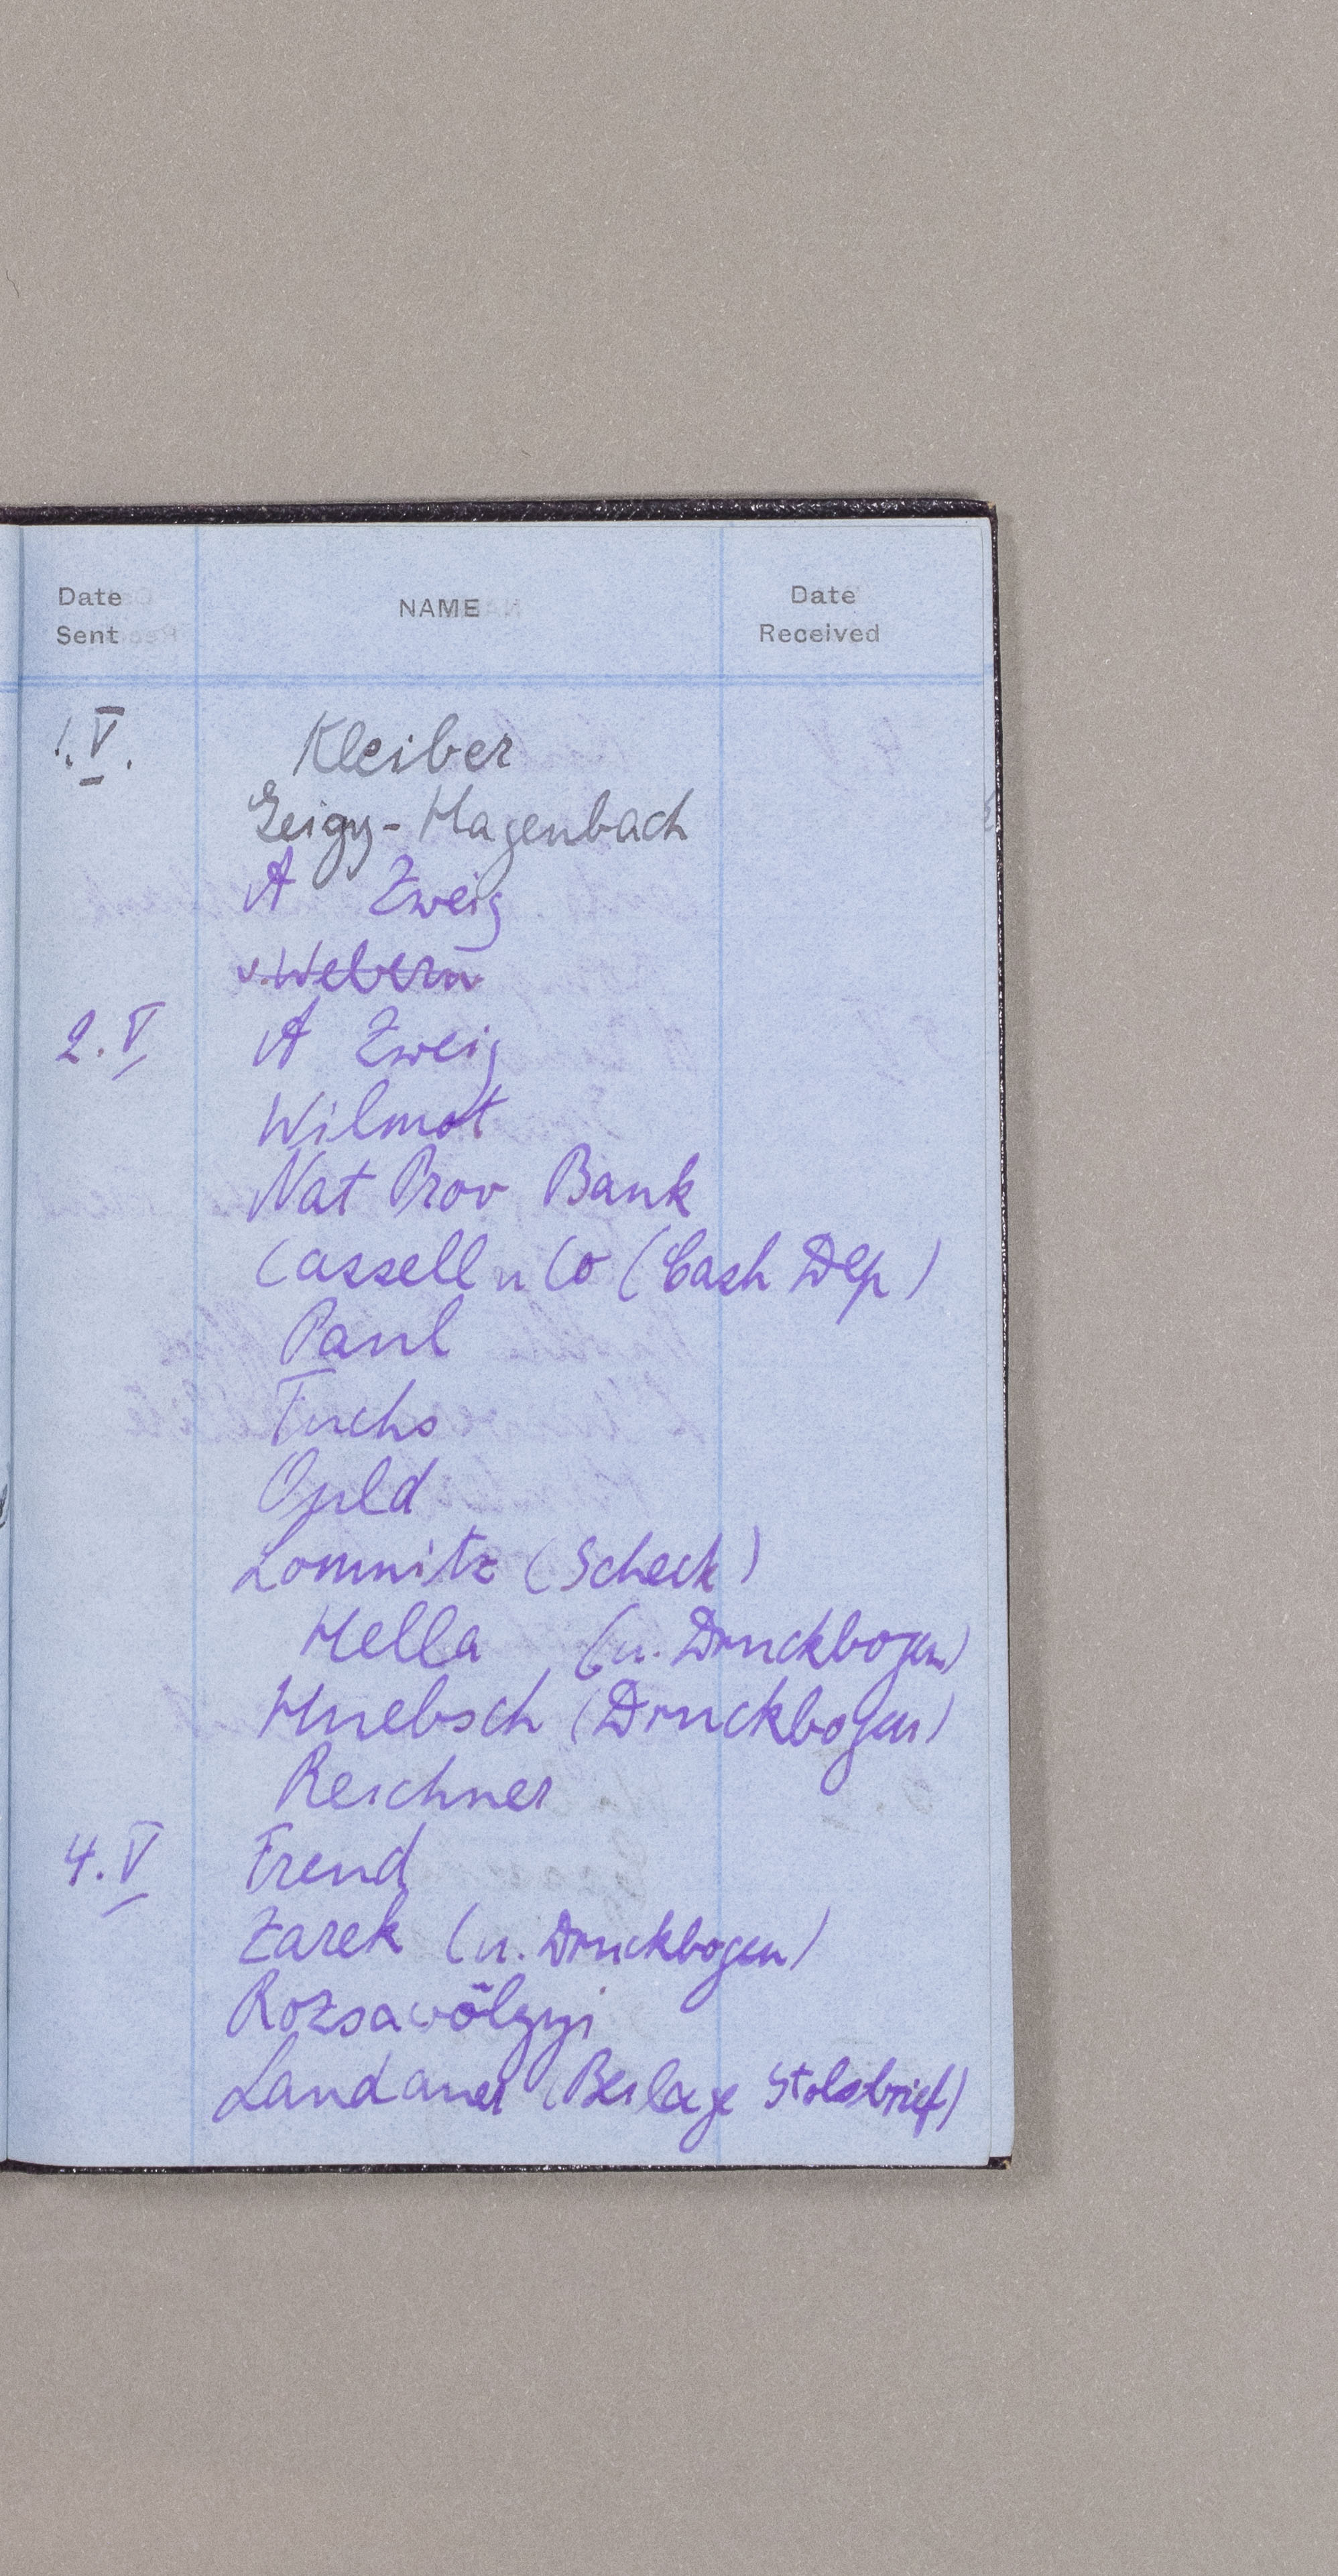 Date Sent NAME Date Received
1.V. Kleiber
Geigy-Hagenbach
A Zweig
v. Webern
2.V A Zweig
Wilmot
Nat Prov Bank
Cassell u Co (Cash Dep)
Paul
Fuchs
Guld
Lomnitz (Scheck)
Hella (u. Druckbogen)
Huebsch (Druckbogen)
Reichner
4.V Freud
Zarek (u. Druckbogen)
Rozsavölgyi
Landauer (Beilage